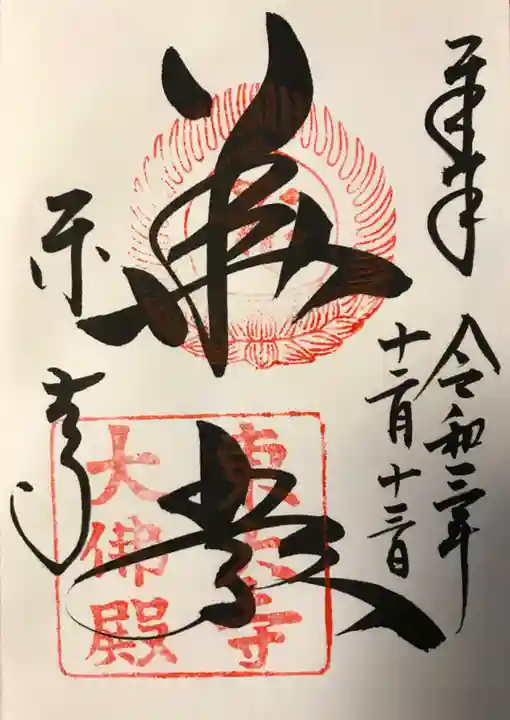 奉拝
令和三年
十二月十三日
華厳
東大寺
大佛殿
東大寺